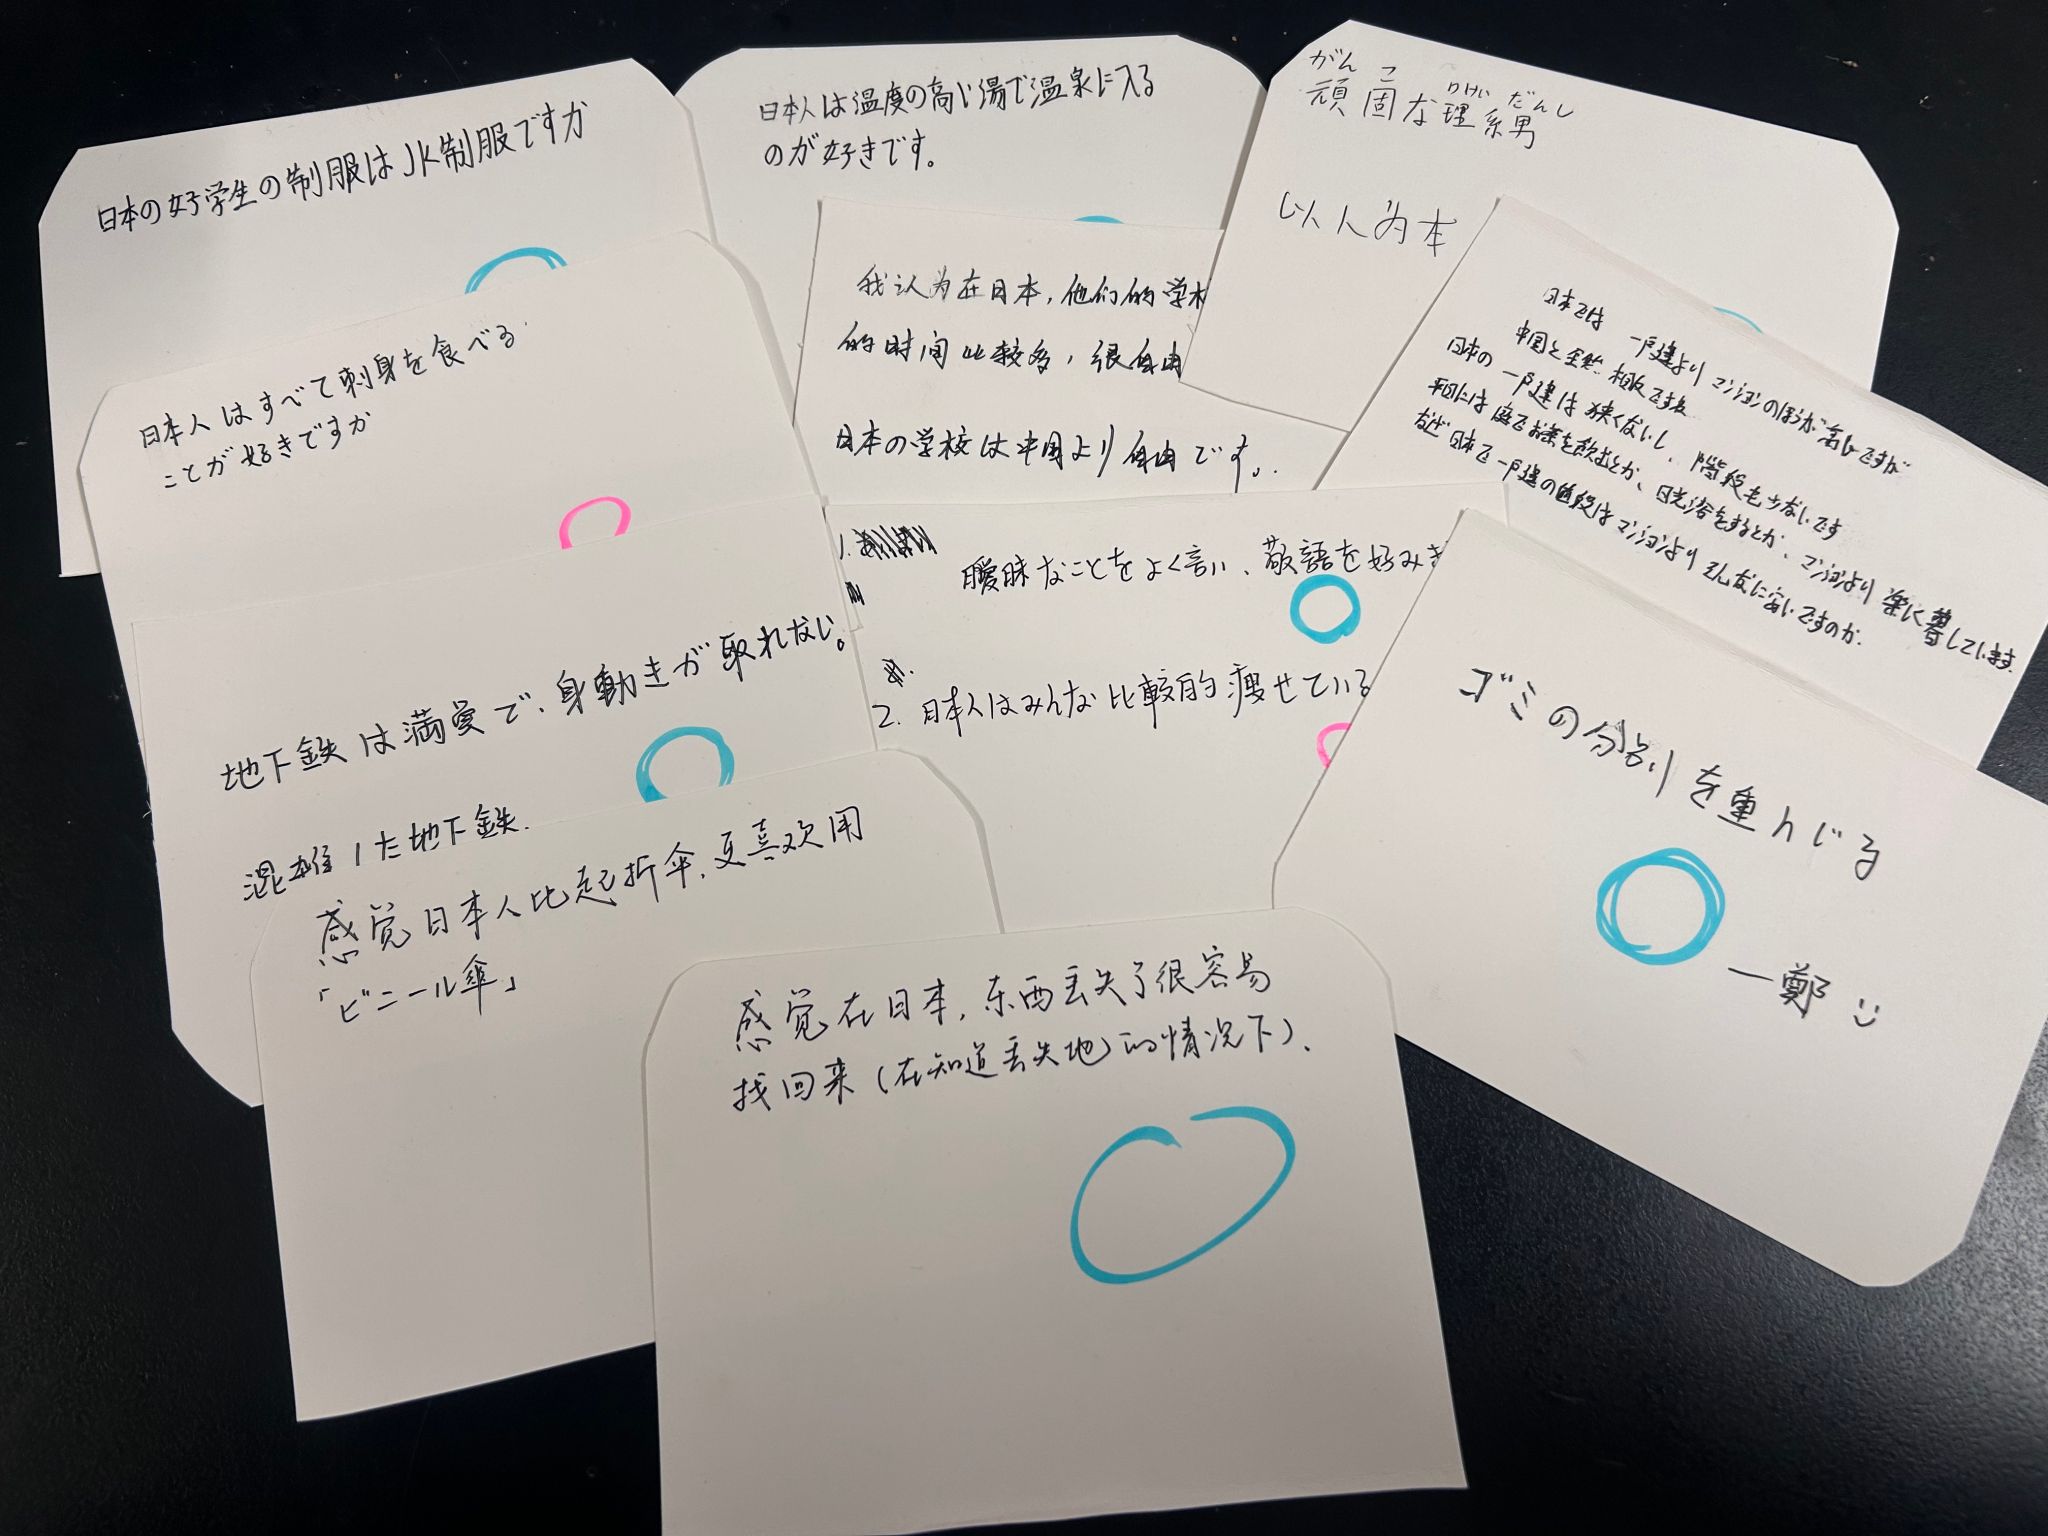 日本の好学生の制服はJK制服ですか
日本人は温度の高い湯で温泉に入る
のが好きです。
がんこ りけい だんし
頑固な理系男
以人为本
日本人はすべて刺身を食べる
ことが好きですか
我认为在日本,他们的学
的时间比较多,很自由
日本の学校は中国より自由です。
日本では 一戸建よりマンションのほうが高いですが
中国と全然 相反ですね
日本の一戸建は狭くないし、階段も少ないです
平日には庭でお茶を飲むとか、日光浴をするとか、マンションより楽に暮しています
なぜ日本で一戸建の値段はマンションより そんなに安いですのか.
1.
曖昧なことをよく言い、敬語を好み
2. 日本人はみんな比較的痩せている
地下鉄は満員で、身動きが取れない。
混雑した地下鉄.
ゴミの分別を重んじる
一鄭
感觉日本人比起折伞,更喜欢用
「ビニール傘」
感觉在日本,东西丢失了很容易
找回来(在知道丢失地的情况下).